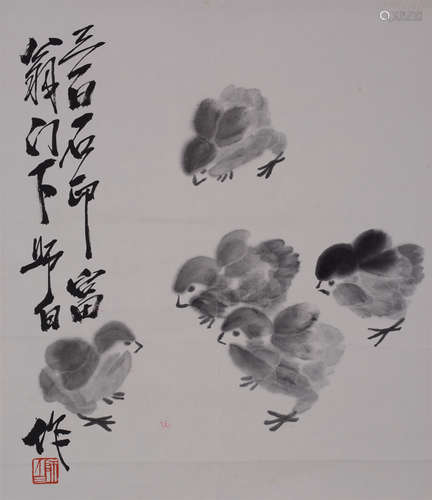 三百石印富
翁门下师白
作